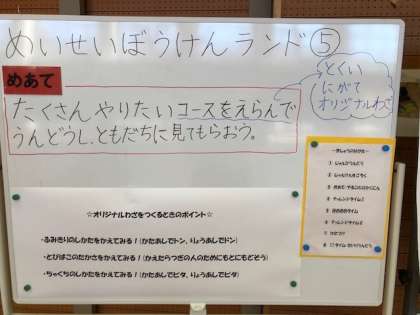 めいせいぼうけんランド⑤
めあて
たくさん やりたい コースをえらんで
うんどうし、ともだちに 見てもらおう。
とくい
にがて
オリジナルわざ
☆オリジナルわざをつくるときのポイント☆
・ふみきりのしかたをかえてみる！(かたあしでドン、りょうあしでドン)
・とびばこのたかさをかえてみる！(かえたらつぎの人のためにもとにもどそう)
・ちゃくちのしかたをかえてみる！(かたあしでピタ、りょうあしでピタ)